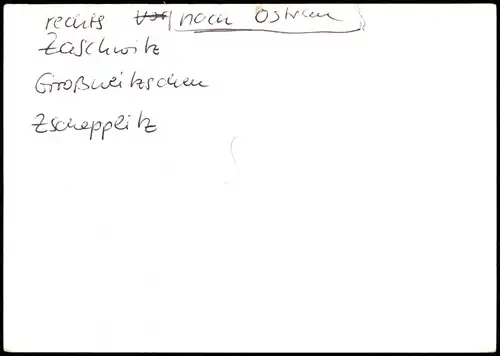 rechts nach Ostrau
Zaschwitz
Großweitzschen
Zschepplitz